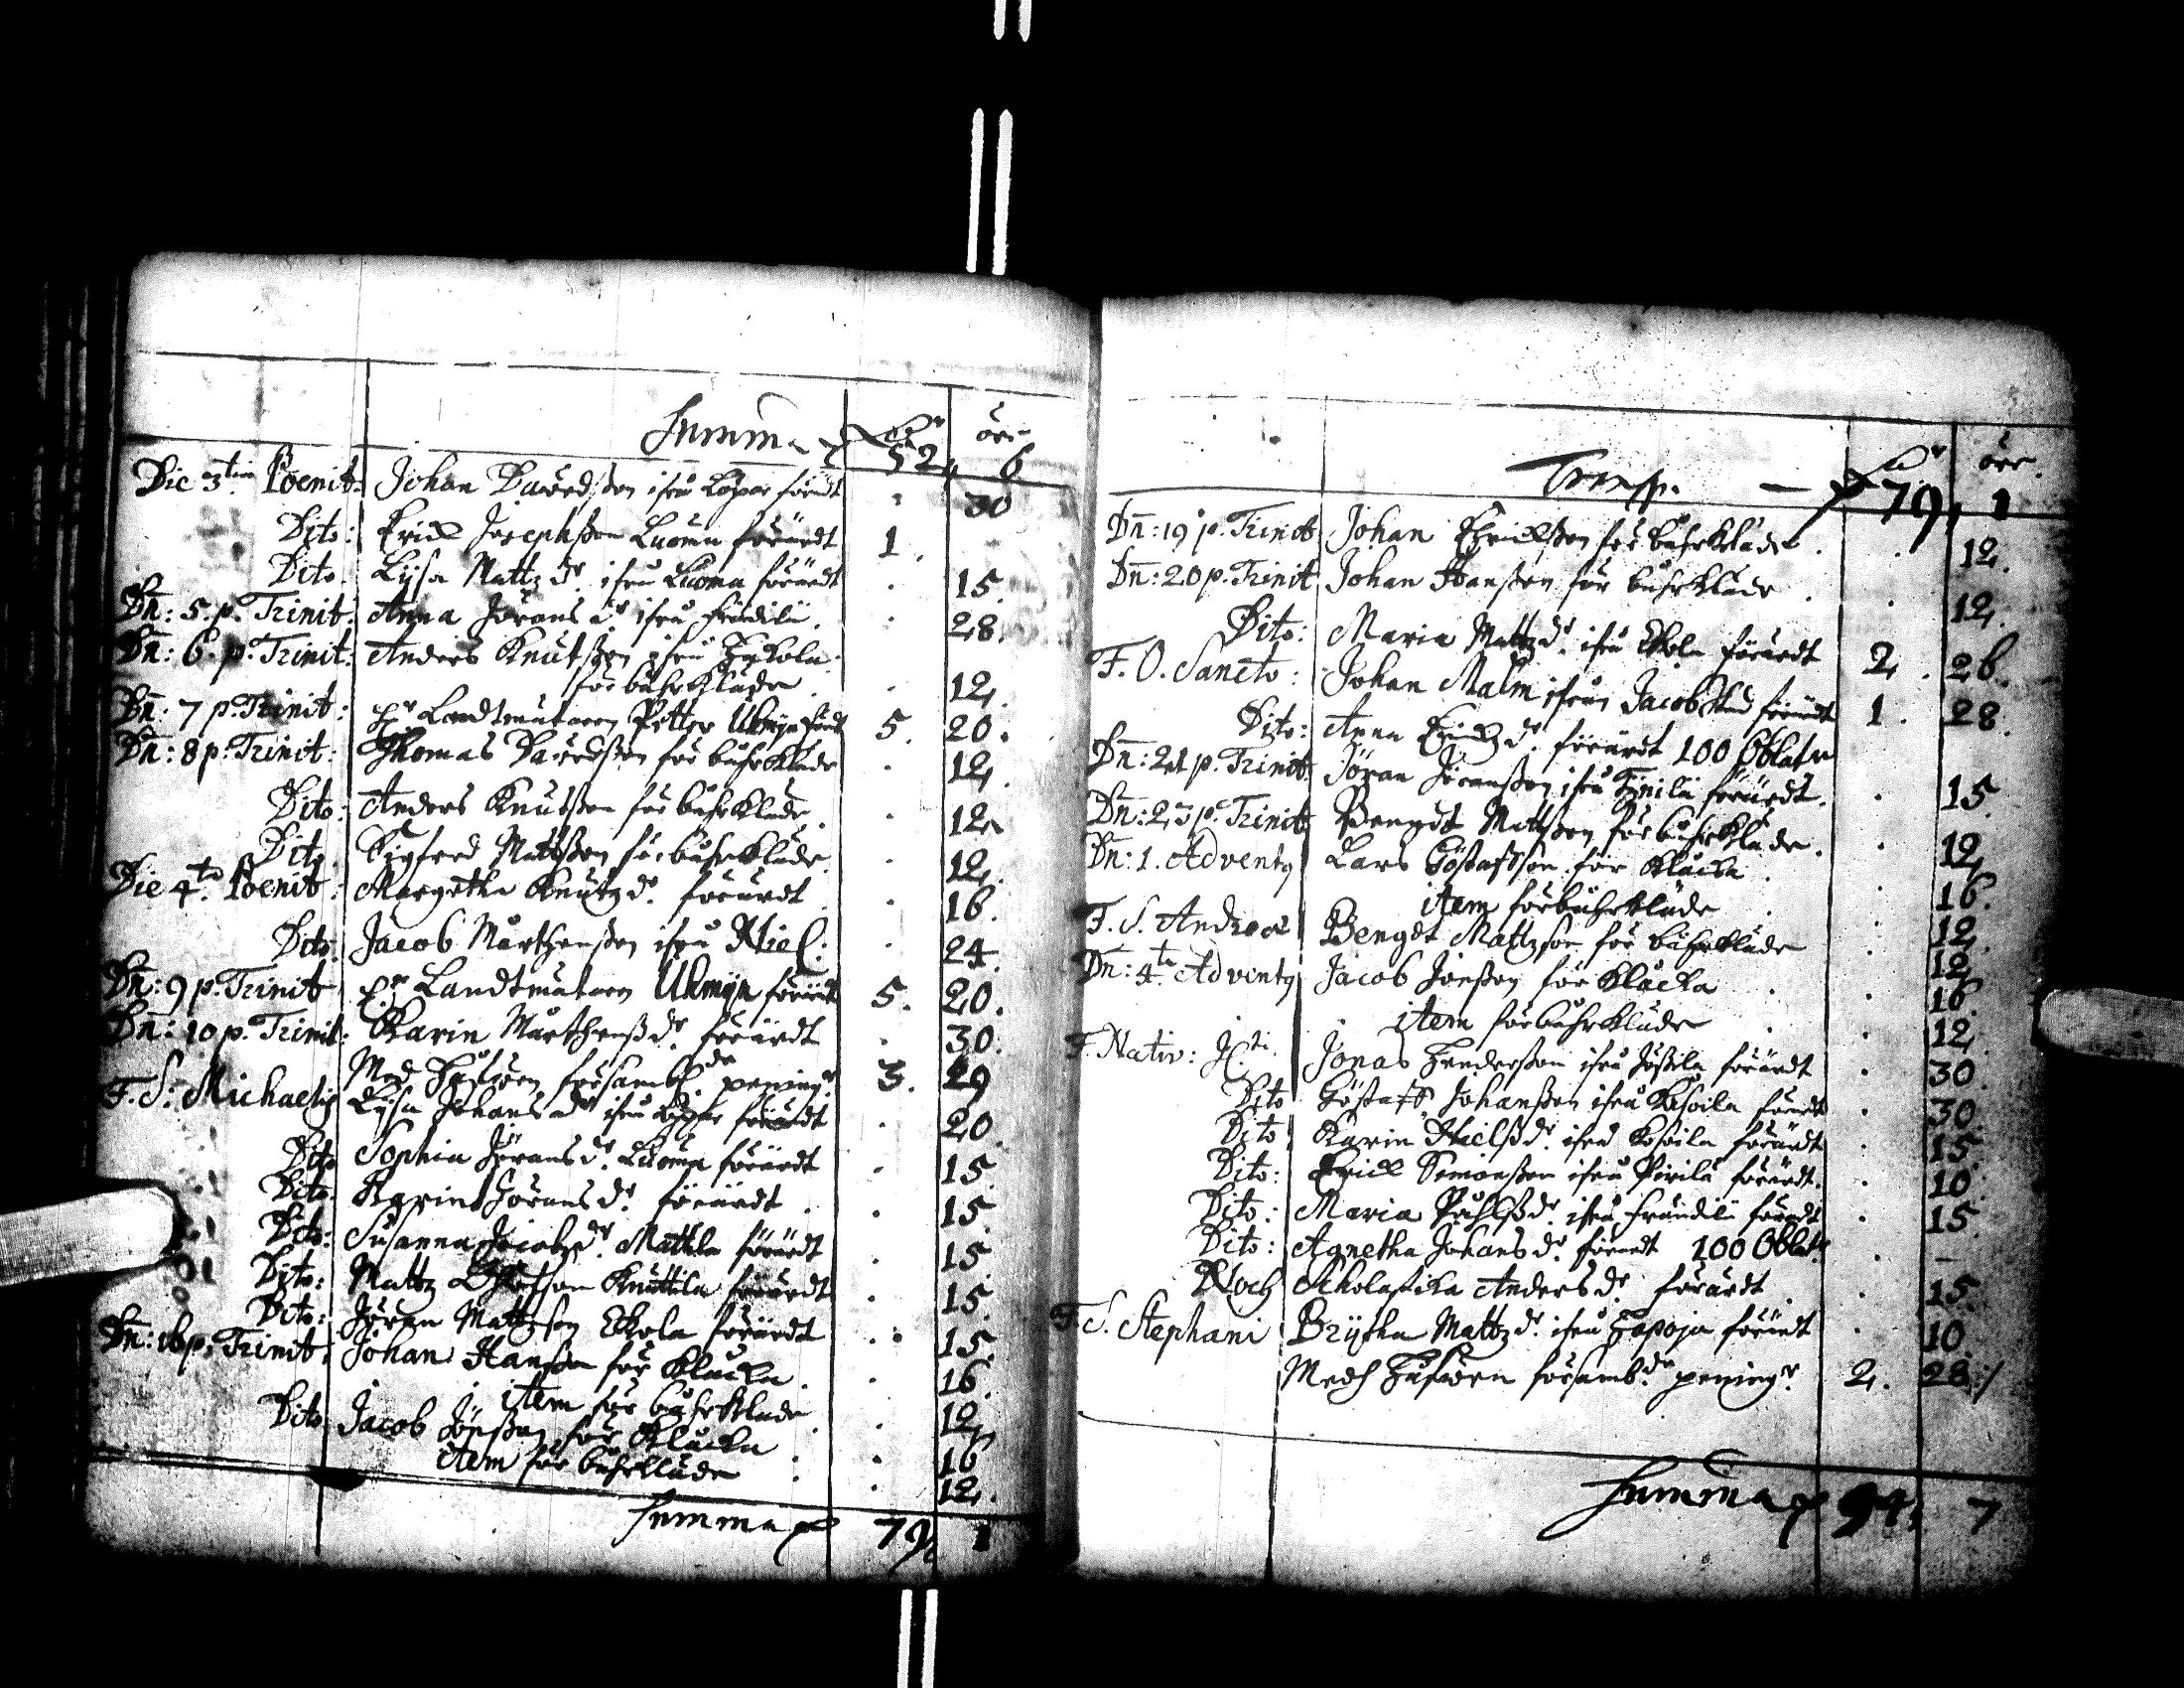 Summa 52 6
öre
Die 3tia Poenit: Johan Davedsson ifrån förärdt 30
Dito: Erich Josephsson Luoma förärdt 1.
Dito Lysa Mattz dr ifrån Luoma förärdt 15.
Dn: 5. p. Trinit: Anna Jörans dr ifrån Frändilä 28.
Dn: 6. p. Trinit: Anders Knutsson ifrån
för båhrkläde 12.
Dn: 7 p. Trinit: Hr Landtmätaren Petter förärdt 5. 20.
Dn: 8 p. Trinit: Thomas Davedsson för båhrkläde 12.
Dito: Anders Knutsson för båhrkläde 12.
Dito Sigfred Mattsson för båhrkläde 12.
Die 4ta Poenit: Margetha Knutz dr förärdt 16.
Dito: Jacob Mårthensson ifrån 24.
Dn: 9 p. Trinit Hr Landtmätaren förärdt 5. 20.
Dn: 10 p. Trinit: Karin Mårthensdr förärdt 30.
Med Håfwen församblde peningr 3. 29
F. S. Michaelis Lysa Johans dr ifrån förärdt 20.
Dito Sophia Jörans dr Luoma förärdt 15.
Dito Karin Jörans dr förärdt 15.
Dito: Susanna Jacobz dr Mattila förärdt 15.
Dito: Mattz Knuttila förärdt 15.
Dito: Jöran Mattzson Ekola förärdt 15.
Dn: 16 p. Trinit: Johan Hansson för Klåcka 16.
item för båhrkläde 12.
Dito Jacob Jönsson för Klåcka 16
item för båhrkläde 12.
Summa 79, 1
öre
Transp. 79, 1
Dn: 19 p. Trinit Johan Erichsson för båhrkläde 12.
Dn: 20 p. Trinit Johan Hansson för båhrkläde 12.
Dito: Maria Mattz dr ifrån Ekola förärdt 2. 26.
F. O. Sancto: Johan Malm ifrån Jacobstad förärdt 1. 28.
Dito: Anna Erichz dr förärdt 100 Oblater
Dn: 21 p. Trinit Jöran Jöransson ifrån förärdt 15
Dn: 23 p. Trinit Bengdt Mattsson för båhrkläde 12
Dn: 1. Advent9 Lars Göstafsson för Klåcka 16.
item för båhrkläde 12
F. S. Andreæ Bengdt Mattzson för båhrkläde 12.
Dn: 4ta Advent9 Jacob Jönsson för Klåcka 16.
item för båhrkläde 12.
F. Nativ: Jonas Hendersson ifrån förärdt 30.
Dito Göstaff Johansson ifrån förärdt 30.
Dito Karin Nielsdr ifrån förärdt 15.
Dito: Erich Simonsson ifrån Pirilä förärdt 10.
Dito: Maria Påhlsdr ifrån Frändilä förärdt 15.
Dito: Agnetha Johans dr förärdt 100 Oblatr —
Noch Scholastika Anders dr förärdt 15.
F. S. Stephani Brytha Mattz dr ifrån förärdt 10.
Medh Håfwen församblde peningr 2. 28:/
Summa 94, 7